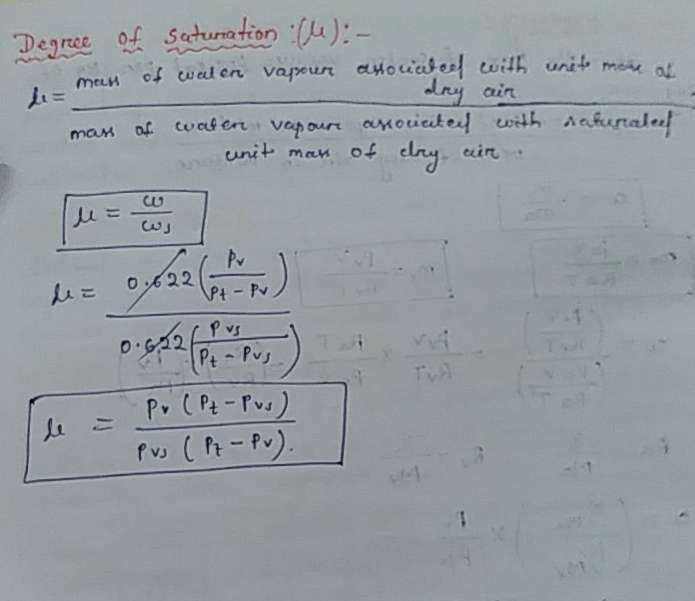 Degree of saturation :(μ):-
μ = mass of water vapour associated with unit mass of dry air
mass of water vapour associated with saturated unit mass of dry air.
μ = ω / ωs
μ = 0.622 (Pv / Pt - Pv)
0.622 (Pvs / Pt - Pvs)
μ = Pv (Pt - Pvs)
Pvs (Pt - Pv).